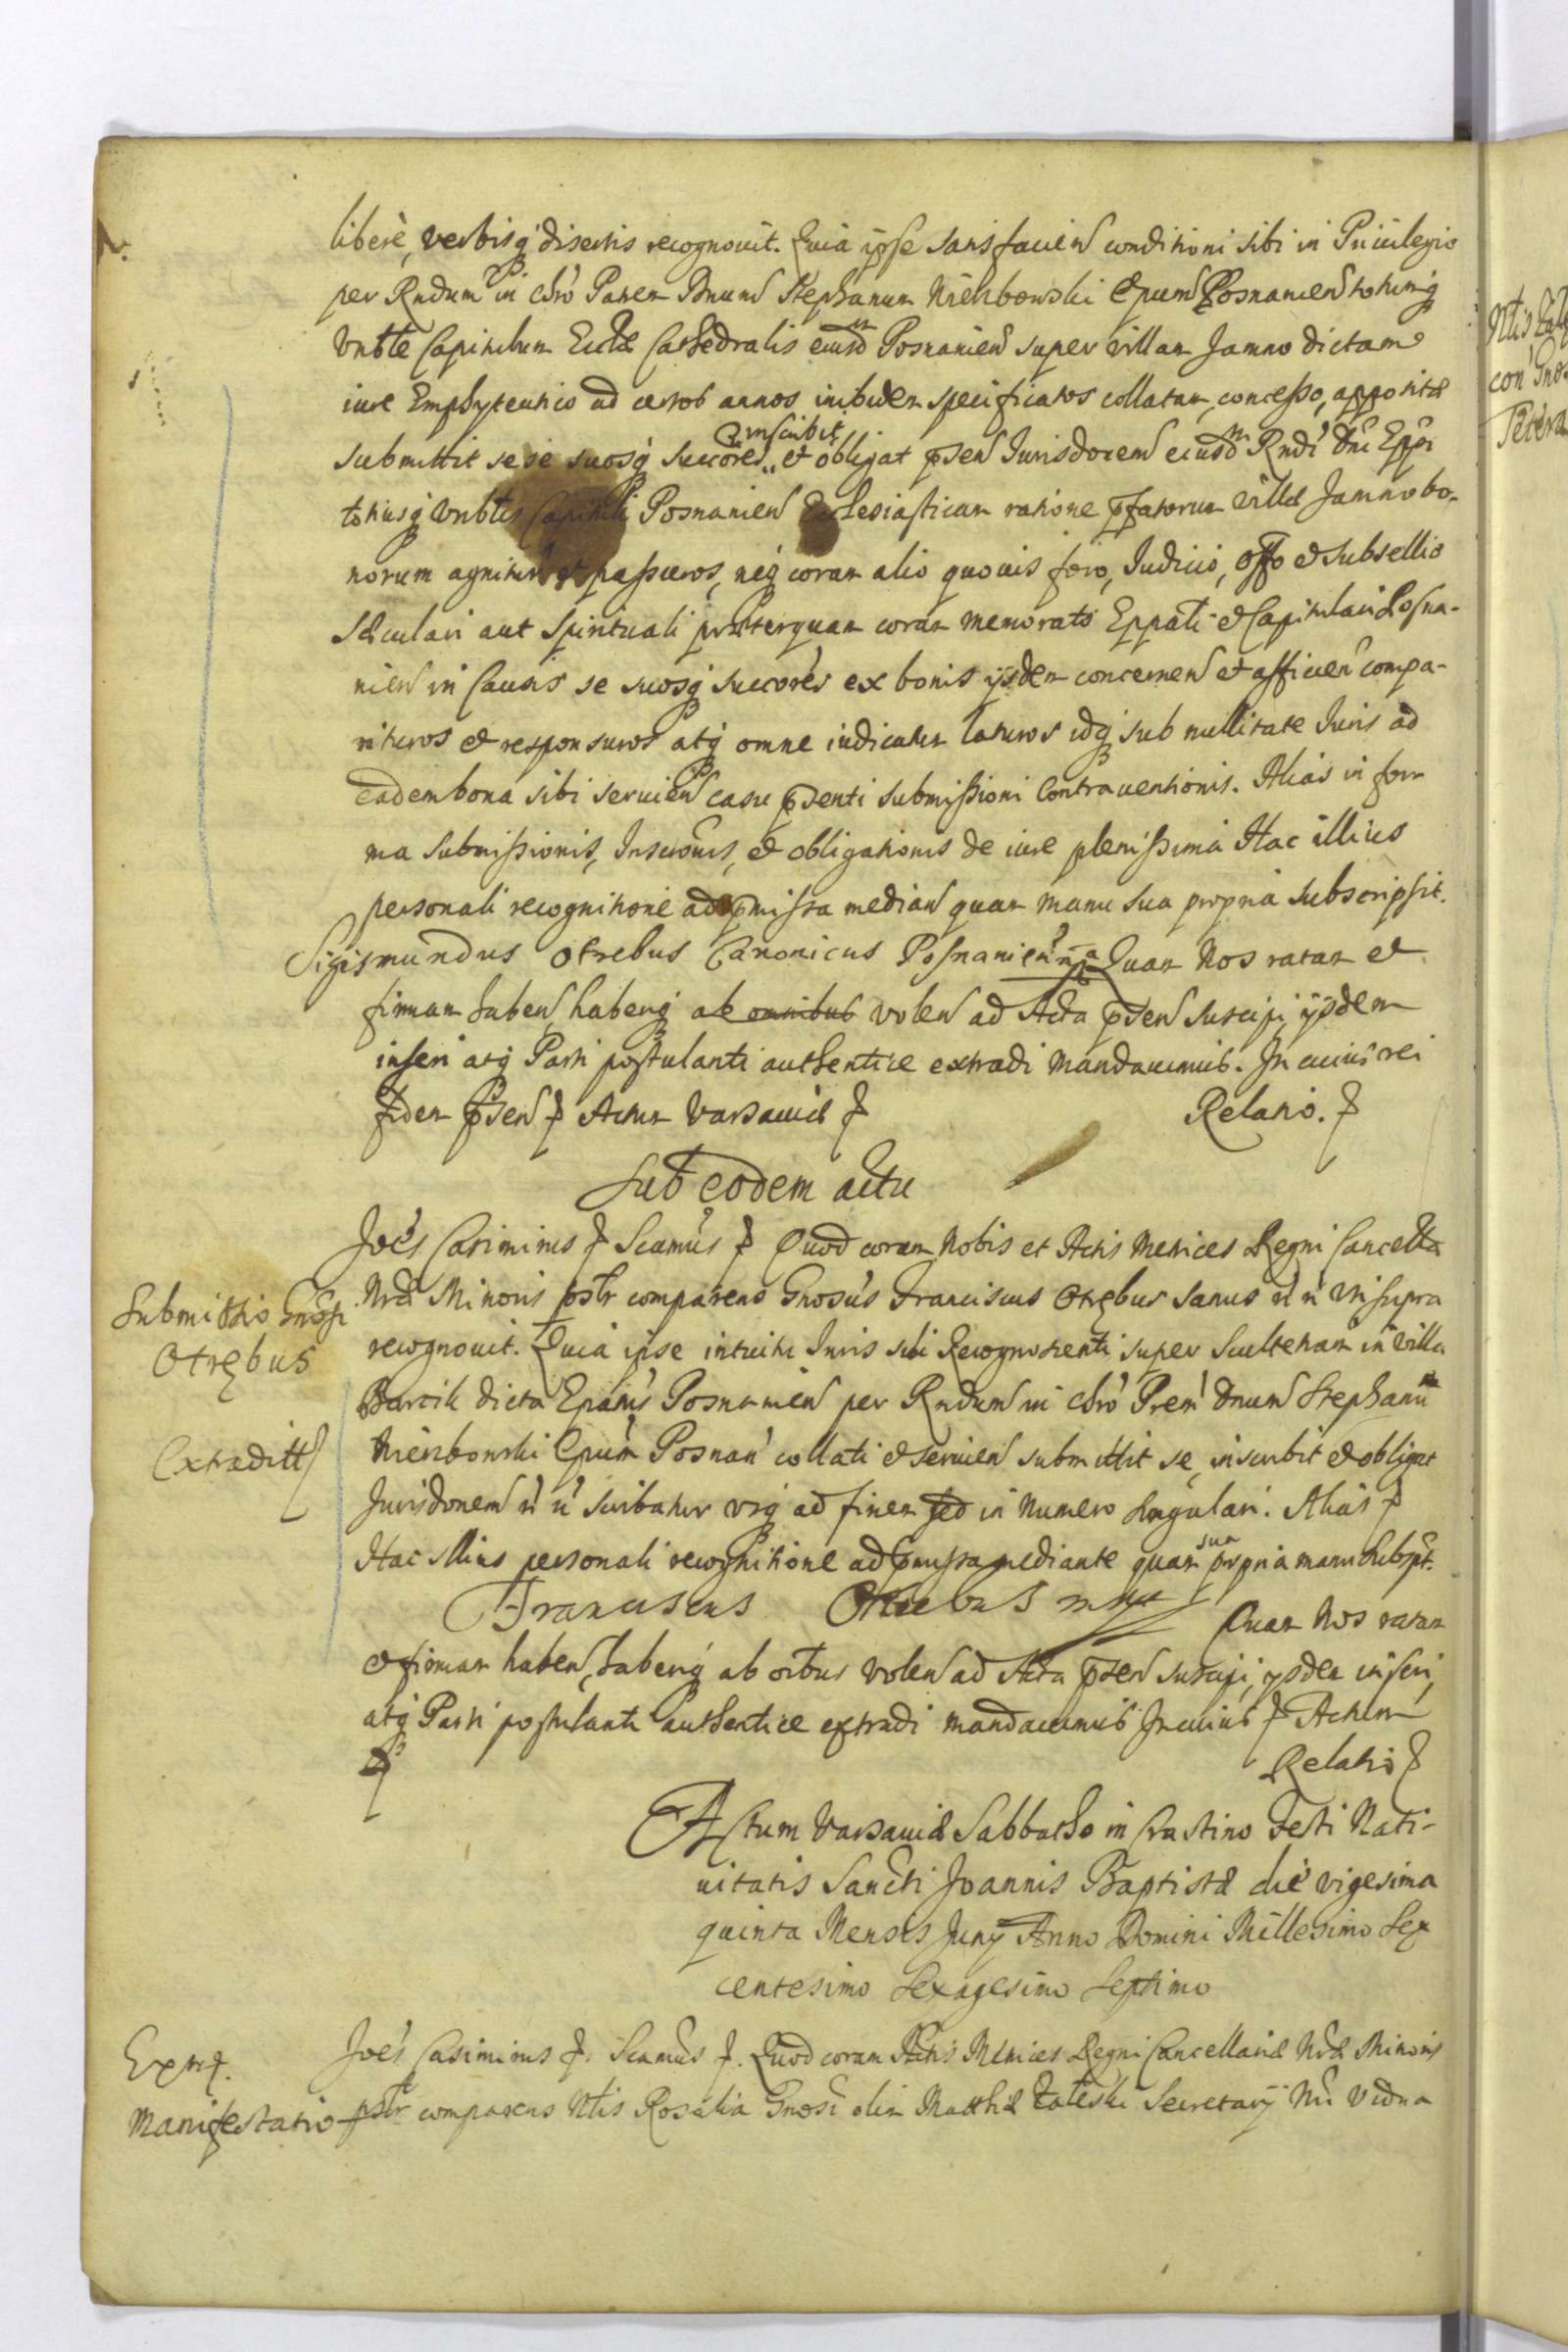 liberè, verbisq disertis recognouit. Quia ipse satisfacien conditioni sibi in Priuilegio
per Rndum in Chro Patrem Dnum Stephanum Wierzbowski Epum Posnanien totumq
Vnble Capitulum Eccla Cathedralis eiusdm Posnanien super villam Jamno dictam
iure Emphyteutico ad certos annos inibidem specificatos collatam, concesso, apposita
inscribit
submittit sese suosq succores et obligat psen Jurisdonem eiusdm Rndi Dni Eppi
totiusq Vnblis Capituli Posnanien Ecclesiasticam ratione pfatorum villæ Jamno bo-
norum agnituros et passuros, neq coram alio quouis foro, Judicio, offo et subsellio
Sæculari aut Spirituali præterquam coram memorato Eppali et Capitulari Posna-
nien in Causis se suosq succores ex bonis ijsdem concernen et afficien compa-
rituros et responsuros atq omne iudicatum laturos idq sub nullitate Juris ad
eadem bona sibi seruien casu psenti submissioni Contrauentionis. Alias in for-
ma submissionis, Inscronis, et obligationis de iure plenissima Hac illius
personali recognitione ad pmissa median quam manu sua propria subscripsit.
Sigismundus Otrebus Canonicus Posnanien Quam Nos ratam et
firmam haben, haberiq ab omnibus volen ad Acta psen suscipi ijsdem
inseri atq Parti postulanti authentice extradi mandauimus. In cuius rei
fidem psen Actum Varsauiæ Relatio.
Sub eodem actu
Joes Casimirus Scamus Quod coram Nobis et Actis Metrices Regni Cancellæ
Submissio Gnosi
Nræ Minoris pstr comparens Gnosus Franciscus Otrębus sanus ut supra
Otrębus
recognouit. Quia ipse intuitu Juris sibi Recognoscenti super Scultetiam in villa
dicta Epatus Posnanien per Rndum in Chro Prem Dnum Stephanum
Extraditt
Wierzbowski Epum Posnan collati et seruien submittit se, inscribit et obligat
Jurisdonem scribatur vsq ad finem sed in Numero singulari. Alias
sua
Hac illius personali recognitione ad pmissa mediante quam propria manu subspt.
Franciscus Otrebus mpp Quam Nos ratam
et firmam haben, haberiq ab oibus volen ad Acta psen suscipi, ijsdem inseri,
atq Parti postulanti authentice extradi mandauimus In cuius Actum
Relatio
Actum Varsauiæ Sabbatho in Crastino Festi Nati-
uitatis Sancti Joannis Baptistæ die vigesima
quinta Mensis Junÿ Anno Domini Millesimo Sex
centesimo Sexagesimo Septimo
Joes Casimirus Scamus Quod coram Actis Metrices Regni Cancellariæ Nræ Minoris
Manifestatio pstr comparens Ntis Rosalia Gnosi olim Matthiæ Zaleski Secretarÿ Nri Vidua